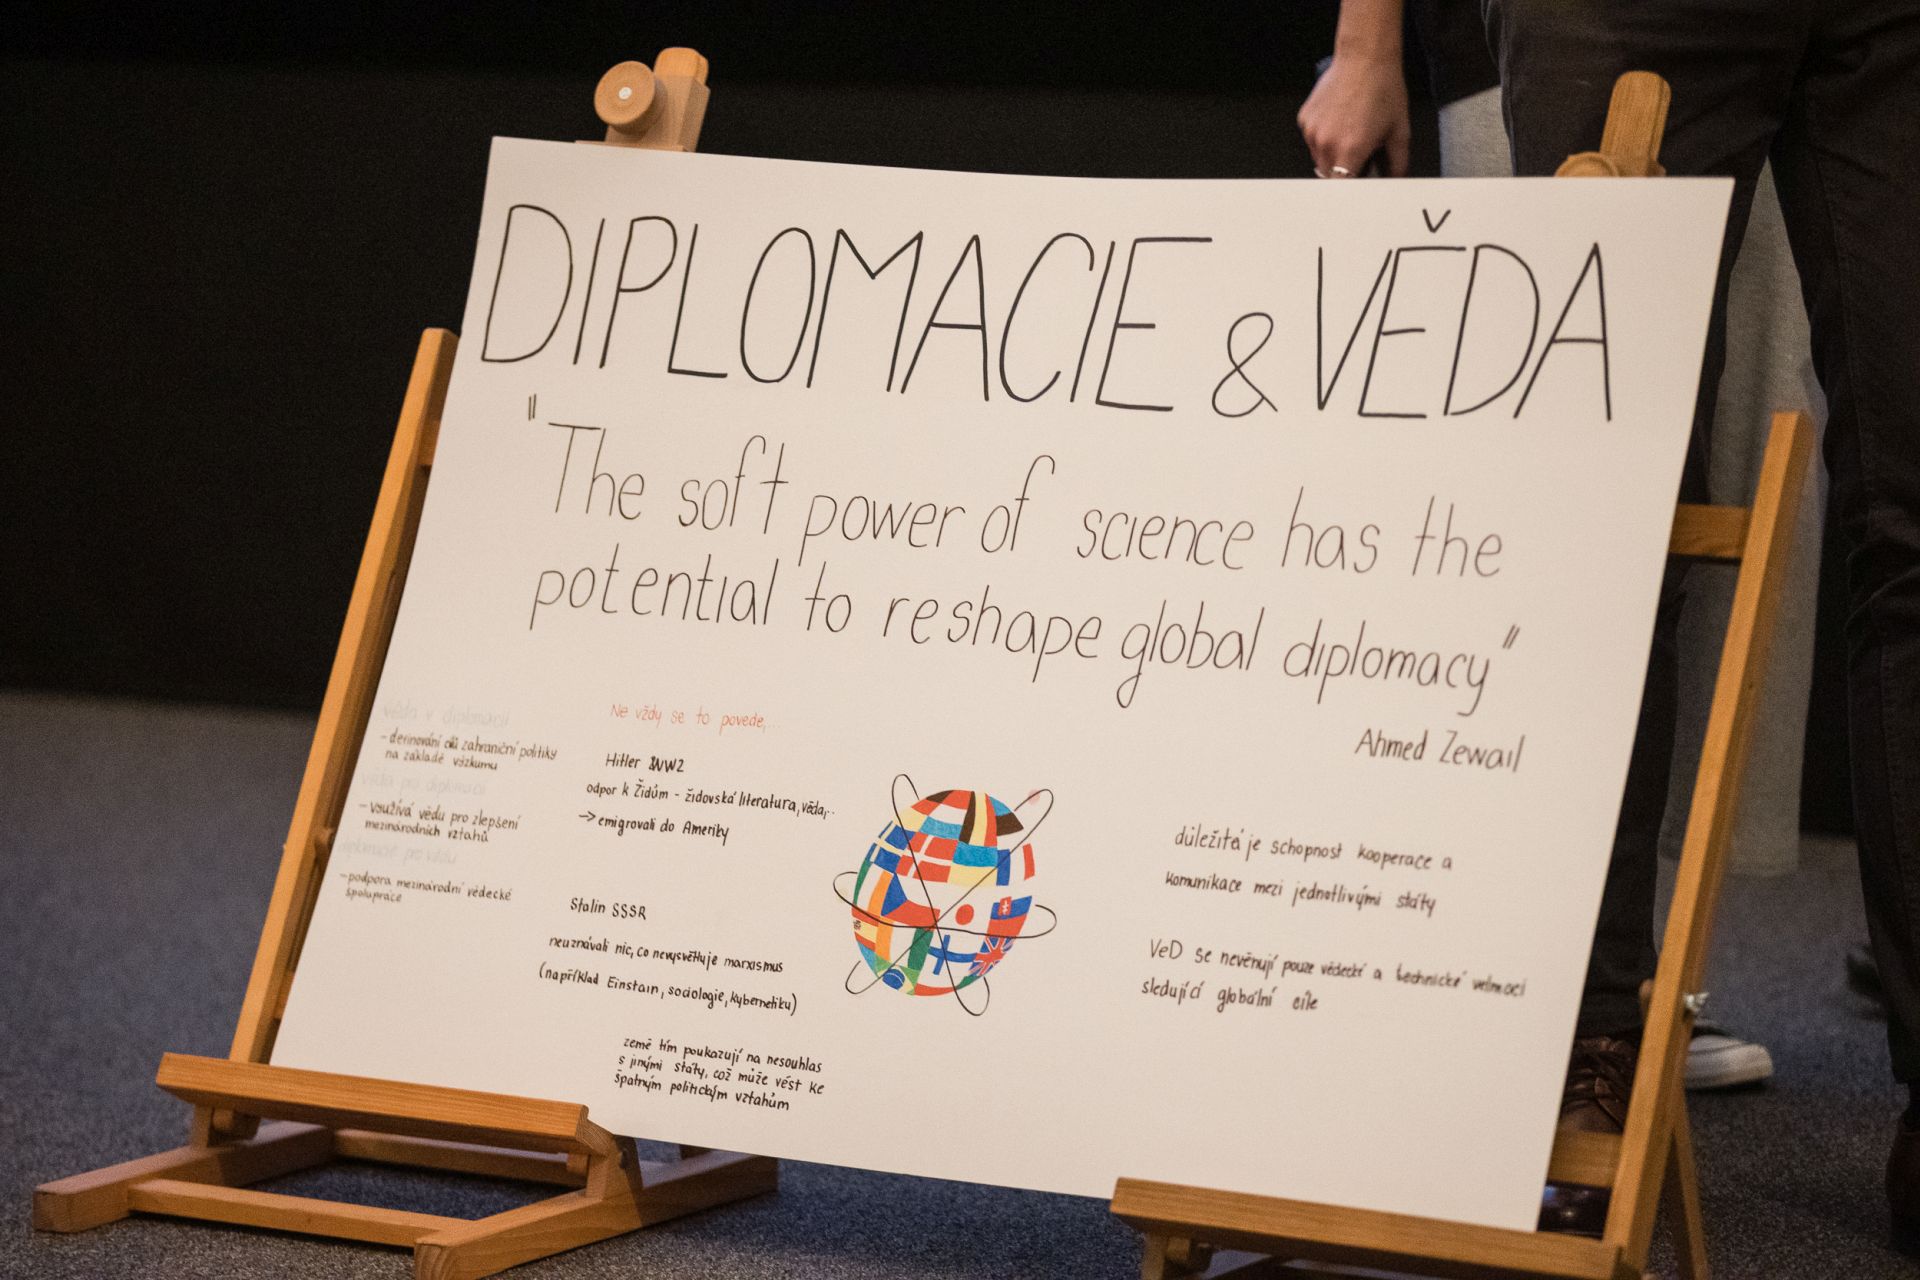 DIPLOMACIE & VĚDA
"The soft power of science has the
potential to reshape global diplomacy"
Ahmed Zewail
věda v diplomacii
- definování cílů zahraniční politiky
na základě výzkumu
věda pro diplomacii
- využívá vědu pro zlepšení
mezinárodních vztahů
diplomacie pro vědu
- podpora mezinárodní vědecké
spolupráce
Ne vždy se to povede,...
Hitler WW2
odpor k Židům - židovská literatura, věda,..
→ emigrovali do Ameriky
Stalin SSSR
neuznávali nic, co nevysvětluje marxismus
(například Einstain, sociologie, kybernetiku)
země tím poukazují na nesouhlas
s jinými státy, což může vést ke
špatným politickým vztahům
důležitá je schopnost kooperace a
komunikace mezi jednotlivými státy
VeD se nevěnují pouze vědecké a technické velmoci
sledující globální cíle